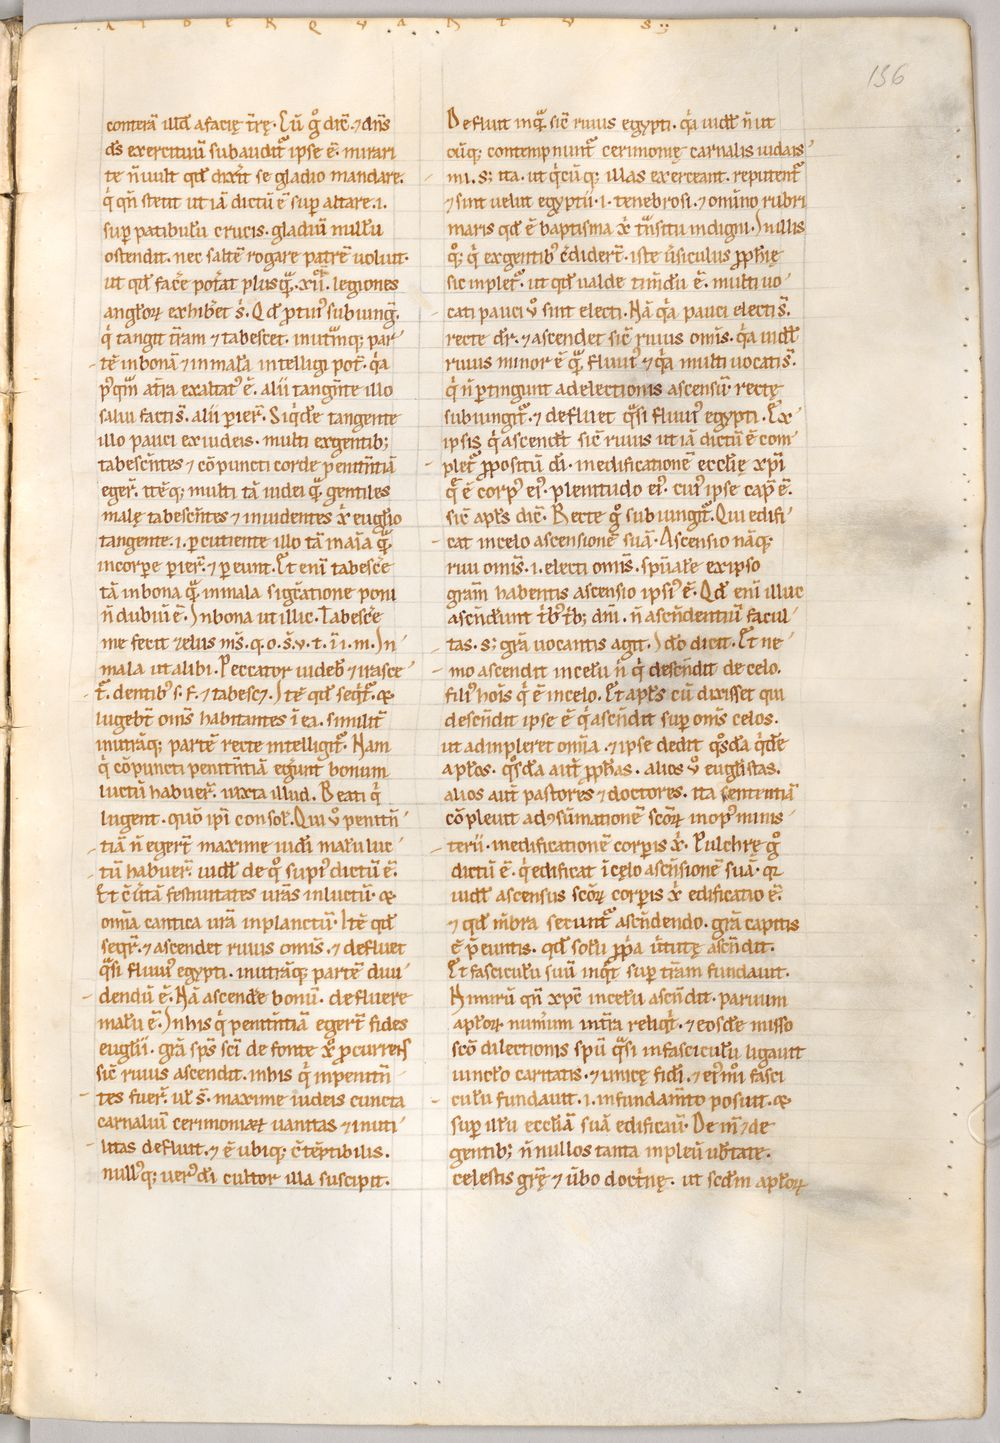 LIBER QVARTVS
136
conterā illud a facię t̄rę. Cū g̊ dic̄. ⁊ dn̄s
ds̄ exercituū subaudit᷑ ipse ē. mirari
te n̄ uult qd̄ dixit se gladio mandare.
q̇ qn̄ stetit ut iā dictū ē sup altare .i.
sup patibulū crucis. gladiū nullū
ostendit. nec saltē rogare patrē uoluit.
ut qd̄ face᷑ pot᷑at plusq̄. xii. legiones
angl̄oꝝ exhibet s̄. Qd̄ ptin᷒ subiunḡ.
q̇ tangit t̄ram ⁊ tabescet. in utrāq; par
tē in bonā ⁊ in malā intelligi pot̄. q̇a
p᷒tqm̄ a t̄ra exaltat᷒ ē. alii tangn̄te illo
salui facti s̄. alii pier̄. Siq̇dē tangente
illo pauci ex iudeis. multi ex gentib;
tabescn̄tes ⁊ cōpuncti corde penitn̄tiā
eger̄. itēq; multi tā iudei q̄ gentiles
malę tabescn̄tes ⁊ inuidentes x̄ euglīo
tangente .i. pcutiente illo tā in aīa q̄
in corpe pier̄. ⁊ peunt. Et enī tabesce᷑
tā in bona q̄ in mala sig᷑tione poni
n̄ dubiū ē. In bona ut illuc. Tabesce᷑
me fecit zelus ms̄. q. o. s̄. v. t. ī. i. m. In
mala ut alibi. Peccator uideb̄ ⁊ irasce
t᷑. dentib᷒ s. f. ⁊ tabesc. Itē qd̄ seq̇t᷑. &
lugebt̄ om̄s habitantes ī ea. similit̄
in utrāq; partē recte intelligit᷑. Nam
q̇ cōpuncti penitn̄tiā eger̄unt bonum
luctū habuer̄. iuxta illud. Beati q̇
lugent. quō ipī consol̄. Qui ů penitn̄
tiā n̄ egert̄ maxime iudei malū luc
tū habuer̄. iudl̄ de q̊ supi᷒ dictū ē.
Et c̄utā festiuitates ur̄as in luctū. &
om̄ia cantica ur̄a in planctū. Itē qd̄
seqr̄. ⁊ ascendet riuus omīs. ⁊ defluet
q̄si fluui᷒ egypti. in utrāq; partē diui
dendū ē. Nā ascende᷑ bonū. defluere
malū ē. In his q̇ penitn̄tiā egert̄ fides
euglīi. gr̄a sp̄s sc̄i de fonte x̊ pcurrens
sic̄ riuus ascendit. in his q̇ inpenitn̄
tes fuer̄. ul̄ s̄. maxime iudeis cuncta
carnaliū cerimoniaꝝ uanitas ⁊ inuti
litas defluit. ⁊ ē ubiq; c̄tēptibilis.
null᷒q; uer᷒ di cultor illa suscipit.
Defluit inq̄ sic̄ riuus egypti. q̇a iudl̄ n̄ ut
cūq; contempnunt᷑ cerimonię carnalis iudais
mi. s; ita. ut q̇cūq; illas exerceant. reputent᷑
⁊ sint uelut egyptii .i. tenebrosi. ⁊ om̄ino rubri
maris qd̄ ē baptisma x̄ t᷑nsitu indigni. In illis
q̊q; q̇ ex gentib᷒ c̄didert̄. iste ūsiculus pphīę
sic inplet᷑. ut qd̄ ualde timd̄ū ē. multi uo
cati pauci ů sint electi. Nā q̇a pauci electi s̄.
recte dr̄. ⁊ ascendet sic̄ riuus omīs. q̇a uidl̄
riuus minor ē q̄ fluui᷒ ⁊ q̇a multi uocati s̄.
q̇ n̄ ptingunt ad electionis ascensū. rectę
subiungit᷑. ⁊ defluet q̄si fluui᷒ egypti. Ex
ipsis q̇ ascendt̄ sic̄ riuus ut iā dictū ē com
plet᷑ ppositū di. in edificationē eccl̄ię xpī
q̄ ē corp᷒ ei᷒. plenitudo ei᷒. cui᷒ ipse cap᷒ ē.
sic̄ apl̄s dic̄. Recte g̊ subiungit᷑. Qui edifi
cat in celo ascensionē suā. Ascensio nāq;
riui omīs .i. electi omīs. spūale᷑ ex ipso
gram̄ habentis ascensio ipsi᷒ ē. Qd̄ enī illuc
ascn̄dunt t̄b᷒ t̄b; dn̄i. n̄ ascn̄dentiū facul
tas. s; gr̄a uocantis agit. Ido dicit. Et ne
mo ascendit in celū n̄ q̇ descn̄dit de celo.
fili᷒ hoīs q̇ ē in celo. Et apl̄s cū dixisset qui
descn̄dit ipse ē q̇ ascn̄dit sup om̄s celos.
ut adimpleret om̄ia. ⁊ ipse dedit q̊sdā q̇dē
aplōs. q̊sdā aut̄ pphas. alios ů euglīstas.
alios aut̄ pastores ⁊ doctores. ita sententiā
cōpleuit ad 9sūmationē scōꝝ in op᷒ minis
terii. in edificationē corpis x̄. Pulchrę g̊
dictū ē. q̇ edificat ī cęlo ascn̄sionē suā. qr
uidl̄ ascensus scōꝝ corpis x̄ edificatio ē.
⁊ qd̄ mb̄ra secunt᷑ ascn̄dendo. gr̄a capitis
ē p̄euntis. qd̄ solū ppa ūtutę ascn̄dit.
Et fasciculū suū inq̇t sup t̄ram fundauit.
Nimirū qn̄ xpc̄ in celū ascn̄dit. paruum
aplōꝝ numm̄ in t̄ra reliq̇t. ⁊ eosdē misso
scō dilectionis spū q̄si in fasciculū ligauit
uinclo caritatis. ⁊ unicę fidi. ⁊ ei᷒mo᷒i fasci
culū fundauit .i. in fundamt̄o posuit. &
sup illū eccl̄iā suā edificauī. De nī ⁊ de
gentib; n̄ nullos tanta inpleū ub̄tate.
celestis grę̄ ⁊ ūbo doct᷑nę. ut scdm̄ aplōꝝ